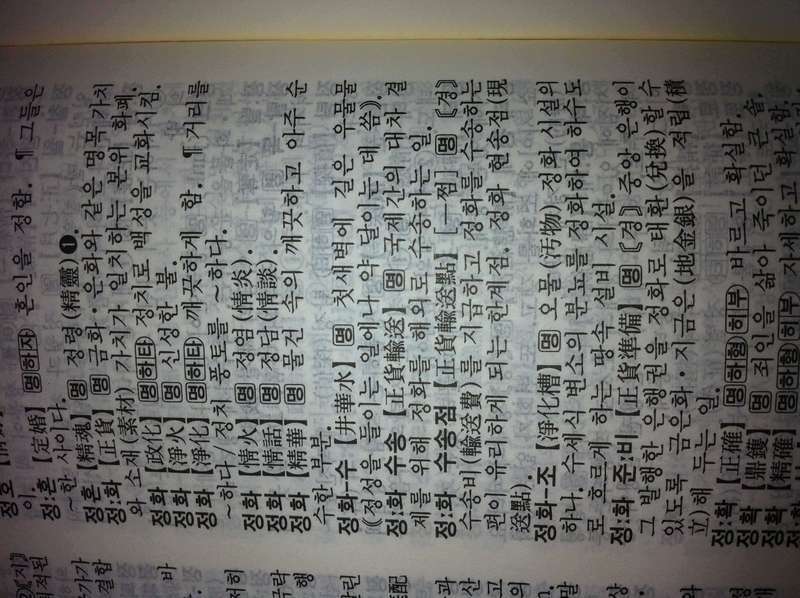 이.
정:혼 【定婚】 명하자 혼인을 정함. ¶그들은
~한 사이다.
정혼 【精魂】 명 정령(精靈)❶.
정화 【正貨】 명 금화·은화와 같은 명목 가치
와 소재(素材) 가치가 일치하는 본위 화폐.
정화 【政化】 명하타 정치로 백성을 교화시킴.
정화 【淨火】 명 신성한 불.
정화 【淨化】 명하타 깨끗하게 함. ¶거리를
~하다/정치 풍토를 ~하다.
정화 【情火】 명 정염(情炎).
정화 【情話】 명 정담(情談).
정화 【精華】 명 물건 속의 깨끗하고 아주 순
수한 부분.
정화-수 【井華水】 명 첫새벽에 길은 우물물
《정성을 들이는 일에나 약 달이는 데 씀》.
정:화 수송 【正貨輸送】 명 국제간의 대차 결
제를 위해 정화를 해외로 수송하는 일.
정:화 수송점 【正貨輸送點】 [―쩜] 명 〔경〕
수송비(輸送費)를 지급하고 정화를 수송하는
편이 유리하게 되는 한계점. 정화 현송점(現
送點).
정화-조 【淨化槽】 명 오물(汚物) 정화 시설의
하나. 수세식 변소의 분뇨를 정화하여 하수도
로 흐르게 하는 땅속 설비 시설.
정:화 준:비 【正貨準備】 명 〔경〕 중앙 은행이
그 발행한 은행권을 정화로 태환(兌換)할 수
있도록 금은화·지금은(地金銀)을 적립(積
立)해 두는 일.
정:확 【正確】 명하형 해부 바르고 확실함.
정확 【鼎鑊】 명 죄인을 삶아 죽이던 큰 솥.
정확 【精確】 명하형 해부 자세하고 확실함.